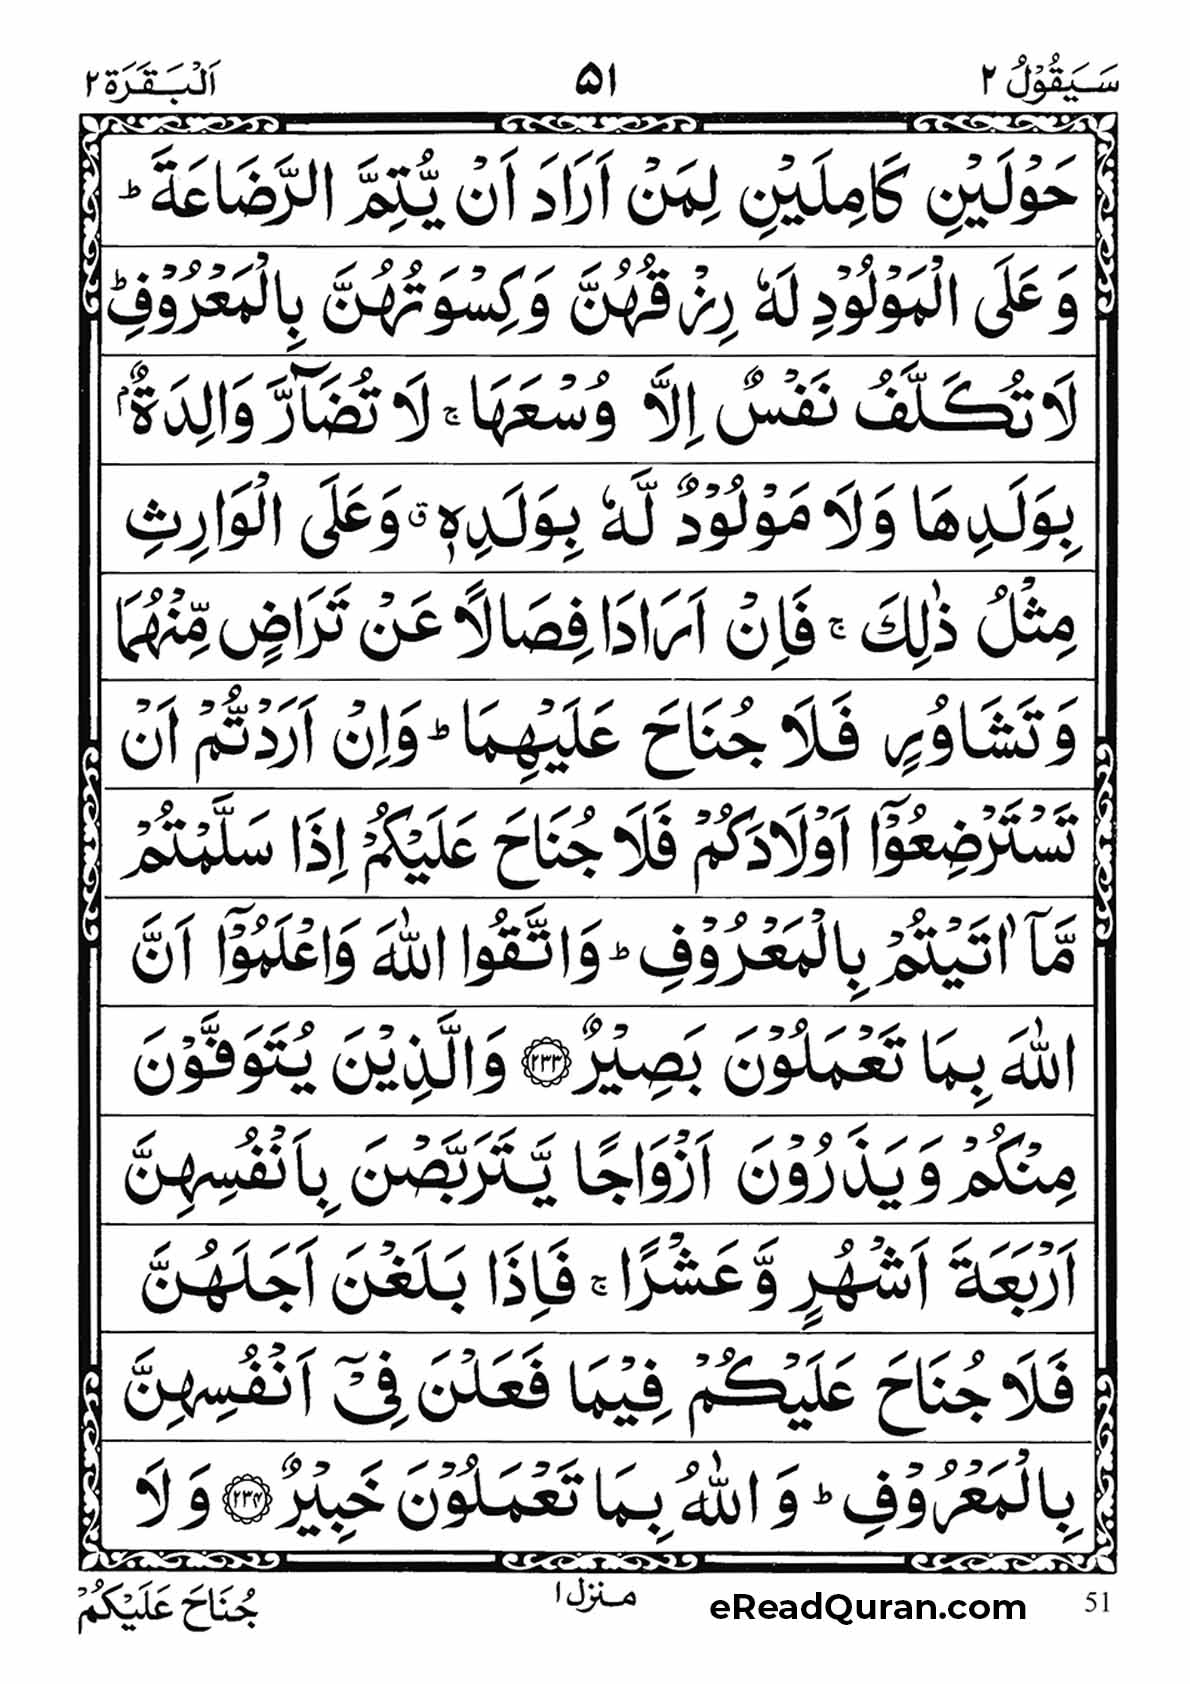 سَيَقُوْلُ ٢ ٥١ اَلْبَقَرَة ٢
حَوْلَيْنِ كَامِلَيْنِ لِمَنْ اَرَادَ اَنْ يُّتِمَّ الرَّضَاعَةَ ؕ
وَ عَلَى الْمَوْلُوْدِ لَهٗ رِزْقُهُنَّ وَكِسْوَتُهُنَّ بِالْمَعْرُوْفِ ؕ
لَا تُكَلَّفُ نَفْسٌ اِلَّا وُسْعَهَا ۚ لَا تُضَآرَّ وَالِدَةٌۢ
بِوَلَدِهَا وَلَا مَوْلُوْدٌ لَّهٗ بِوَلَدِهٖ ۗ وَعَلَى الْوَارِثِ
مِثْلُ ذٰلِكَ ۚ فَاِنْ اَرَادَا فِصَالًا عَنْ تَرَاضٍ مِّنْهُمَا
وَتَشَاوُرٍ فَلَا جُنَاحَ عَلَيْهِمَا ؕ وَاِنْ اَرَدْتُّمْ اَنْ
تَسْتَرْضِعُوْٓا اَوْلَادَكُمْ فَلَا جُنَاحَ عَلَيْكُمْ اِذَا سَلَّمْتُمْ
مَّآ اٰتَيْتُمْ بِالْمَعْرُوْفِ ؕ وَاتَّقُوا اللّٰهَ وَاعْلَمُوْٓا اَنَّ
اللّٰهَ بِمَا تَعْمَلُوْنَ بَصِيْرٌ ﴿٢٣٣﴾ وَالَّذِيْنَ يُتَوَفَّوْنَ
مِنْكُمْ وَيَذَرُوْنَ اَزْوَاجًا يَّتَرَبَّصْنَ بِاَنْفُسِهِنَّ
اَرْبَعَةَ اَشْهُرٍ وَّعَشْرًا ۚ فَاِذَا بَلَغْنَ اَجَلَهُنَّ
فَلَا جُنَاحَ عَلَيْكُمْ فِيْمَا فَعَلْنَ فِيْٓ اَنْفُسِهِنَّ
بِالْمَعْرُوْفِ ؕ وَ اللّٰهُ بِمَا تَعْمَلُوْنَ خَبِيْرٌ ﴿٢٣٤﴾ وَ لَا
جُنَاحَ عَلَيْكُمْ
منزل ١
eReadQuran.com
51